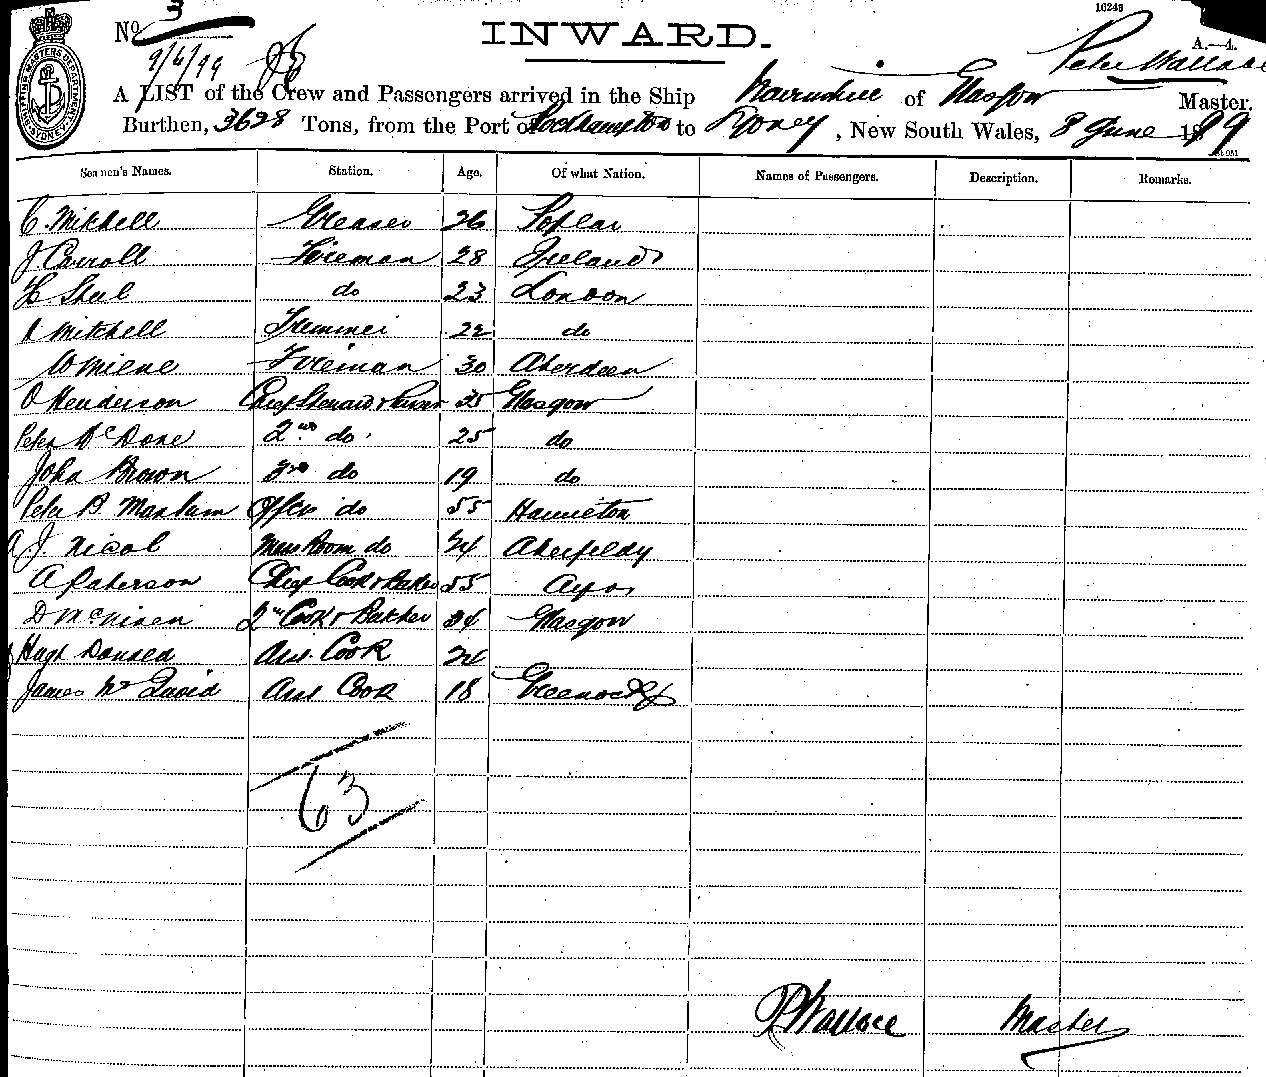 16243
No. 3
INWARD.
A.—4.
9/6/99
Peter Wallace
A LIST of the Crew and Passengers arrived in the Ship of Glasgow Master,
Burthen, 3628 Tons, from the Port of Rockhampton to Sydney, New South Wales, 8 June 1899
Seamen's Names. Station. Age. Of what Nation. Names of Passengers. Description. Remarks.
C. Mitchell Greaser 26 Poplar
J Carroll Fireman 28 Ireland
do 23 London
Mitchell Trimmer 22 do
W Milne Fireman 30 Aberdeen
O Henderson Chief Steward & Purser 35 Glasgow
Peter 2nd do 25 do
John Brown 3rd do 19 do
Peter B. do 55 Hamilton
A J. Nicol Mess Room do 24 Aberfeldy
A Paterson Chief Cook & Baker 55 Ayr
D McNiven 2nd Cook & Baker 34 Glasgow
Hugh Asst. Cook
James Mc David Asst Cook 18 Greenock
63
P Wallace Master